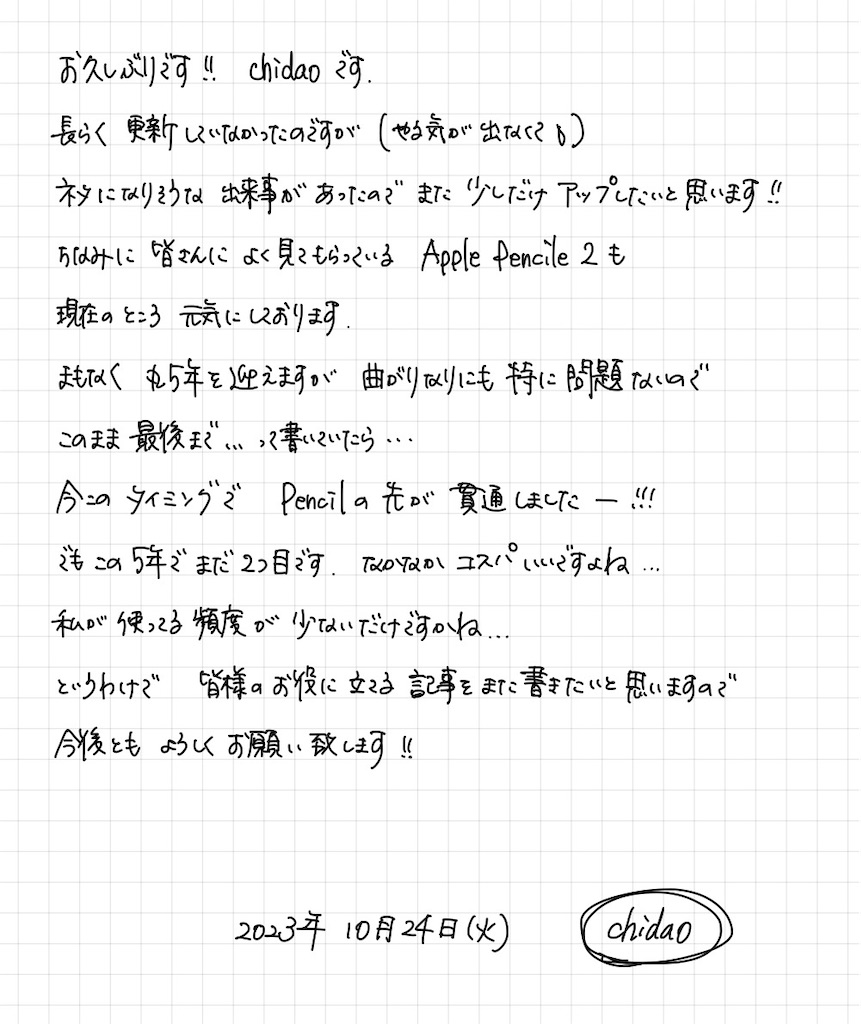 お久しぶりです!! chidaoです.
長らく 更新していなかったのですが (やる気が出なくて)
ネタになりそうな 出来事が あったので また 少しだけ アップしたいと思います!!
ちなみに 皆さんに よく見てもらっている Apple Pencile 2も
現在のところ 元気にしております.
まもなく 丸5年を迎えますが 曲がりなりにも 特に問題ないので
このまま 最後まで... って書いていたら...
今この タイミングで Pencilの 先が 貫通しましたー!!!
でも この 5年で まだ 2つ目です. なかなか コスパ いいですよね...
私が 使ってる 頻度が 少ないだけですかね...
というわけで 皆様の お役に 立てる 記事を また 書きたいと思いますので
今後とも よろしく お願い致します!!
2023年 10月24日(火) chidao